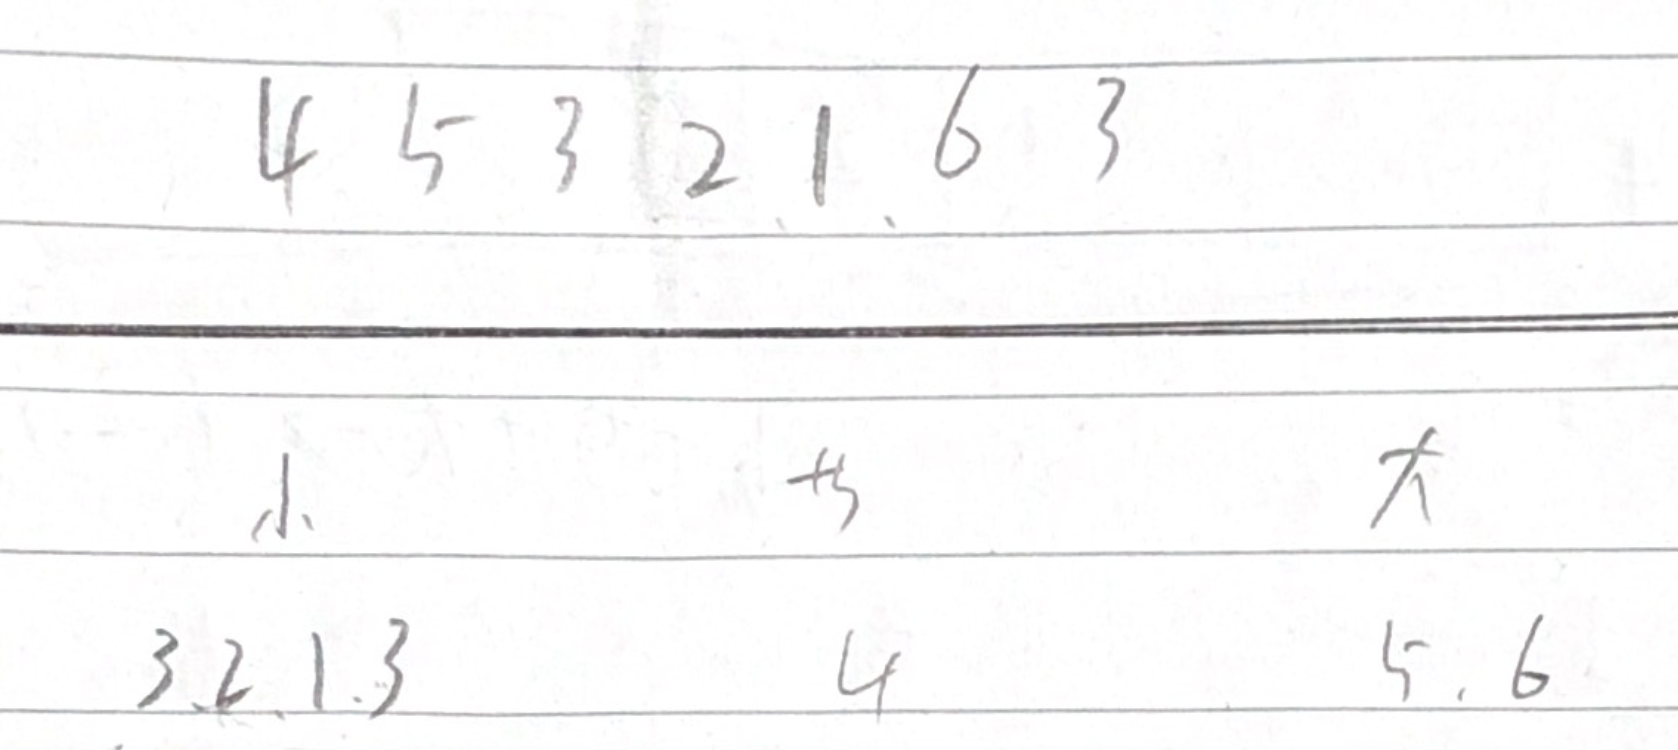 4 5 3 2 1 6 3
小 大
3.2.1.3 4 5.6